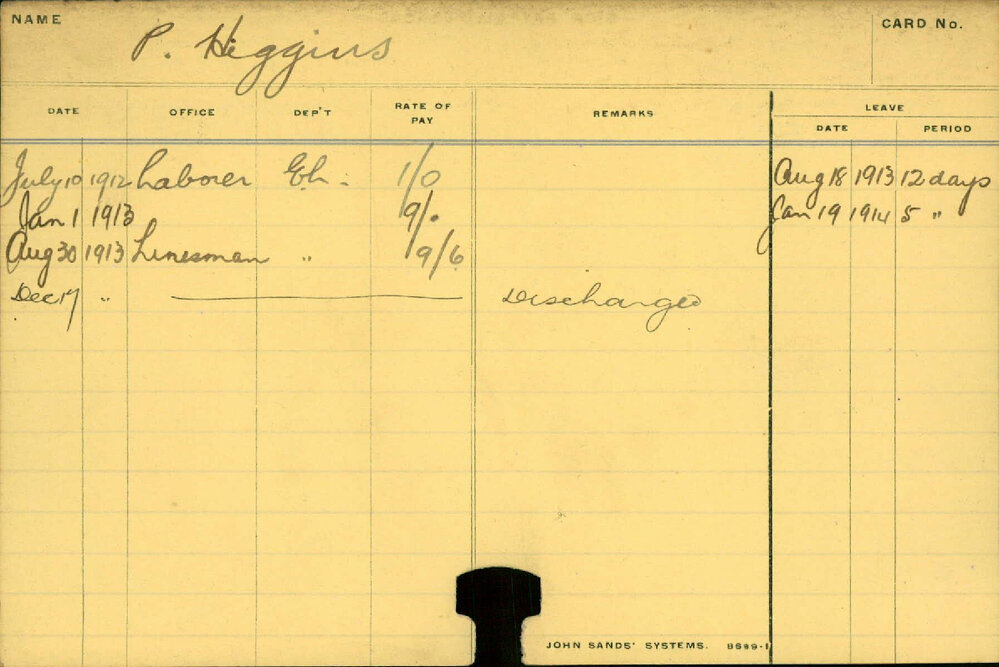 NAME P. Higgins CARD No.
DATE OFFICE DEP'T RATE OF PAY REMARKS LEAVE
DATE PERIOD
July 10 1912 Laborer Eh. 1/0 Aug 18 1913 12 days
Jan 1 1913 9/. Jan 19 1914 5 "
Aug 30 1913 Linesman " 9/6
Dec 17 " Discharged
JOHN SANDS' SYSTEMS.